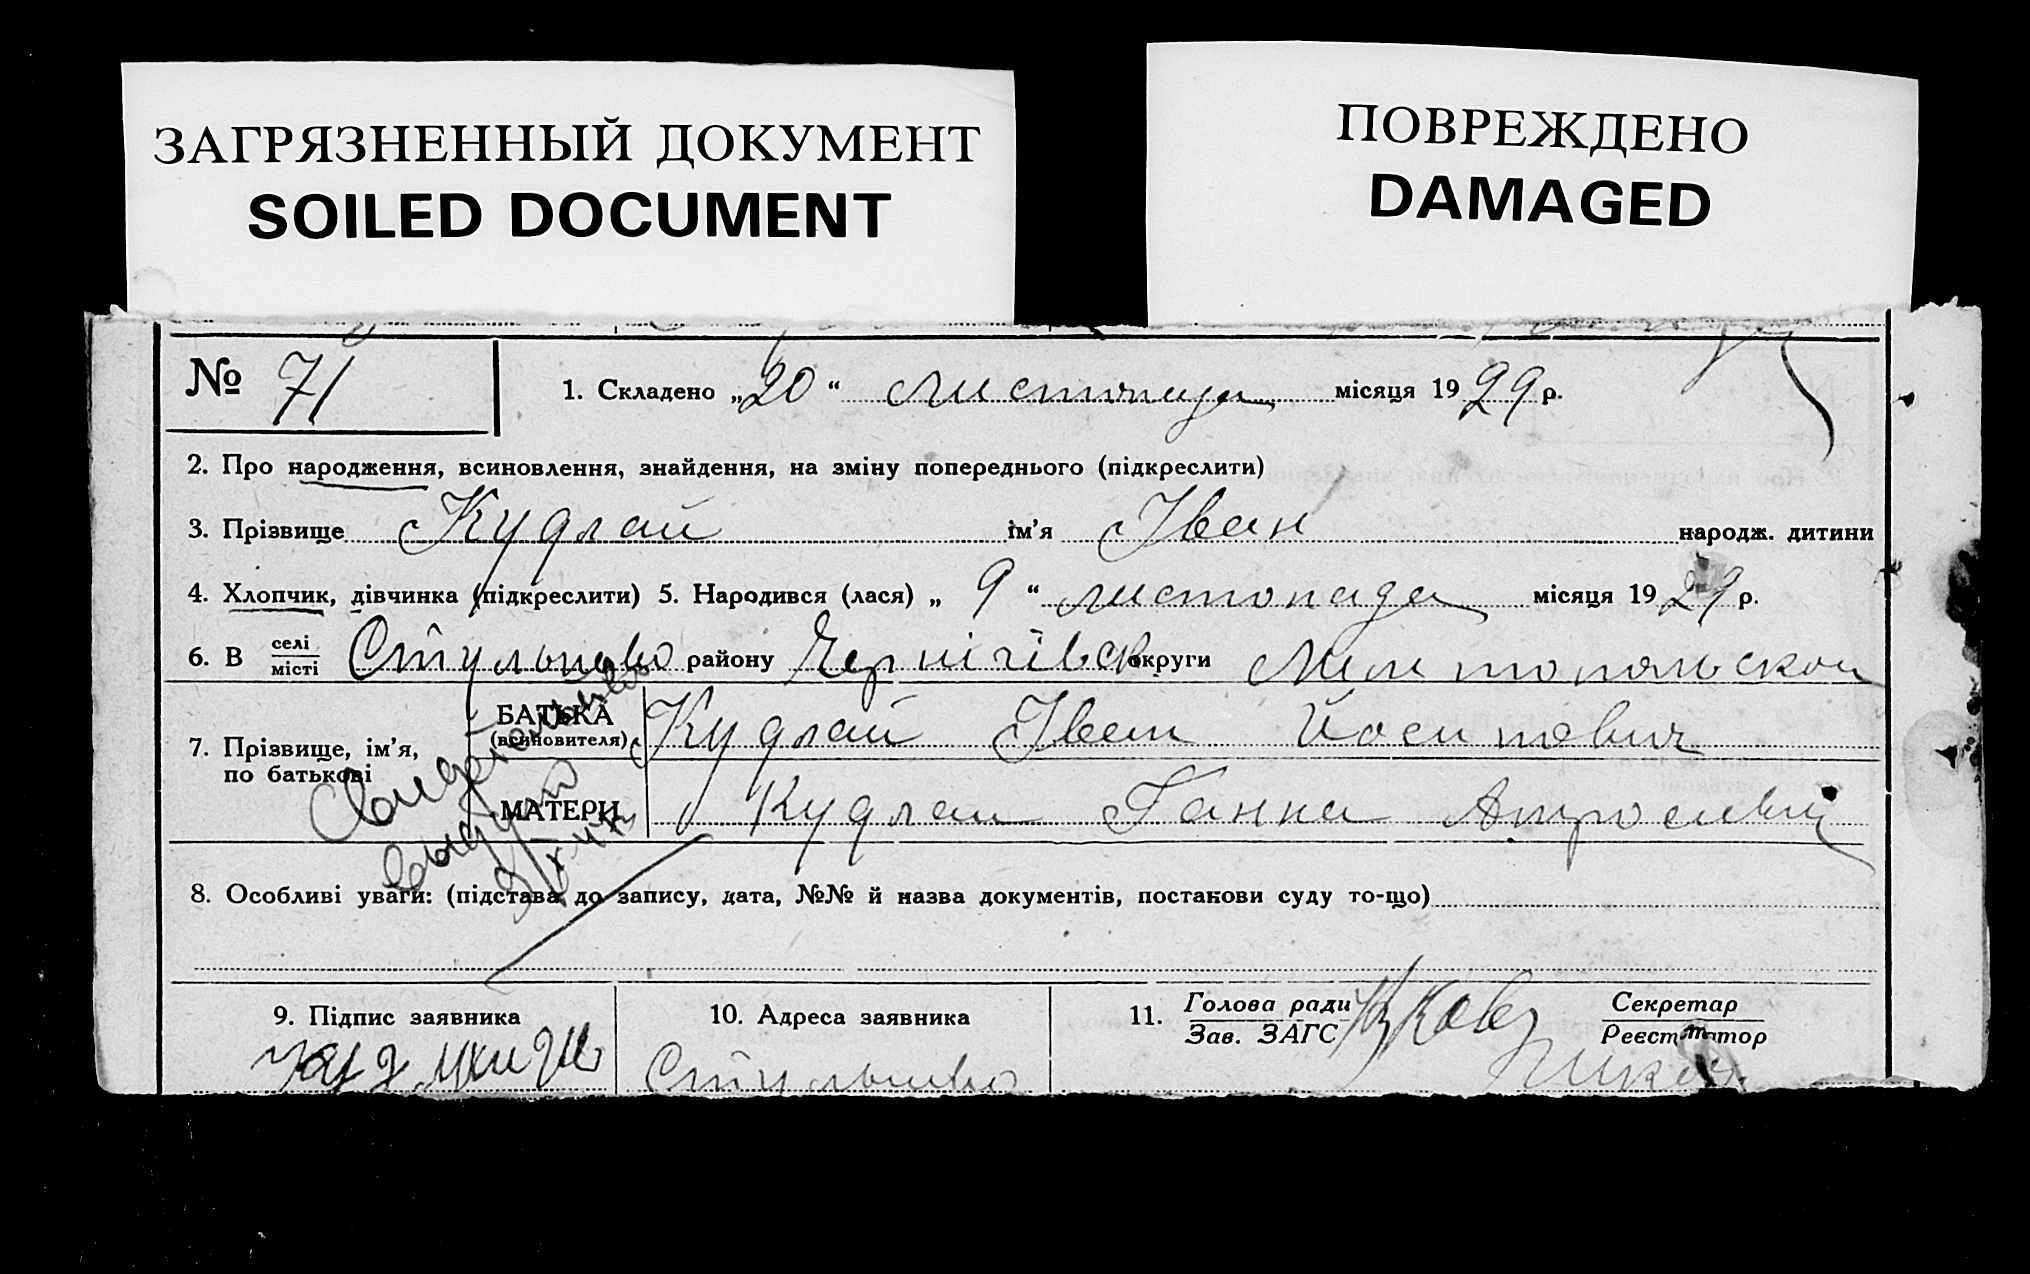 ЗАГРЯЗНЕННЫЙ ДОКУМЕНТ
SOILED DOCUMENT
ПОВРЕЖДЕНО
DAMAGED
№ 71
1. Складено „20“ листопада місяця 1929 р.
2. Про народження, всиновлення, знайдення, на зміну попереднього (підкреслити)
3. Прізвище Кудлай ім’я Іван народж. дитини
4. Хлопчик, дівчинка (підкреслити) 5. Народився (лася) „9“ листопада місяця 1929 р.
6. В селі
місті
Стульнево району Чернігівск округи Мелітопольскои
7. Прізвище, ім’я,
по батькові
БАТЬКА
(всиновителя)
Кудлай Іван Йосипович
МАТЕРИ
Кудлай Ганна
8. Особливі уваги: (підстава до запису, дата, №№ й назва документів, постанови суду то-що)
9. Підпис заявника
10. Адреса заявника
Стульнево
11. Голова ради
Зав. ЗАГС
Секретар
Реєстратор